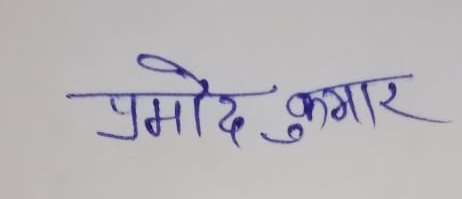 प्रमोद कुमार